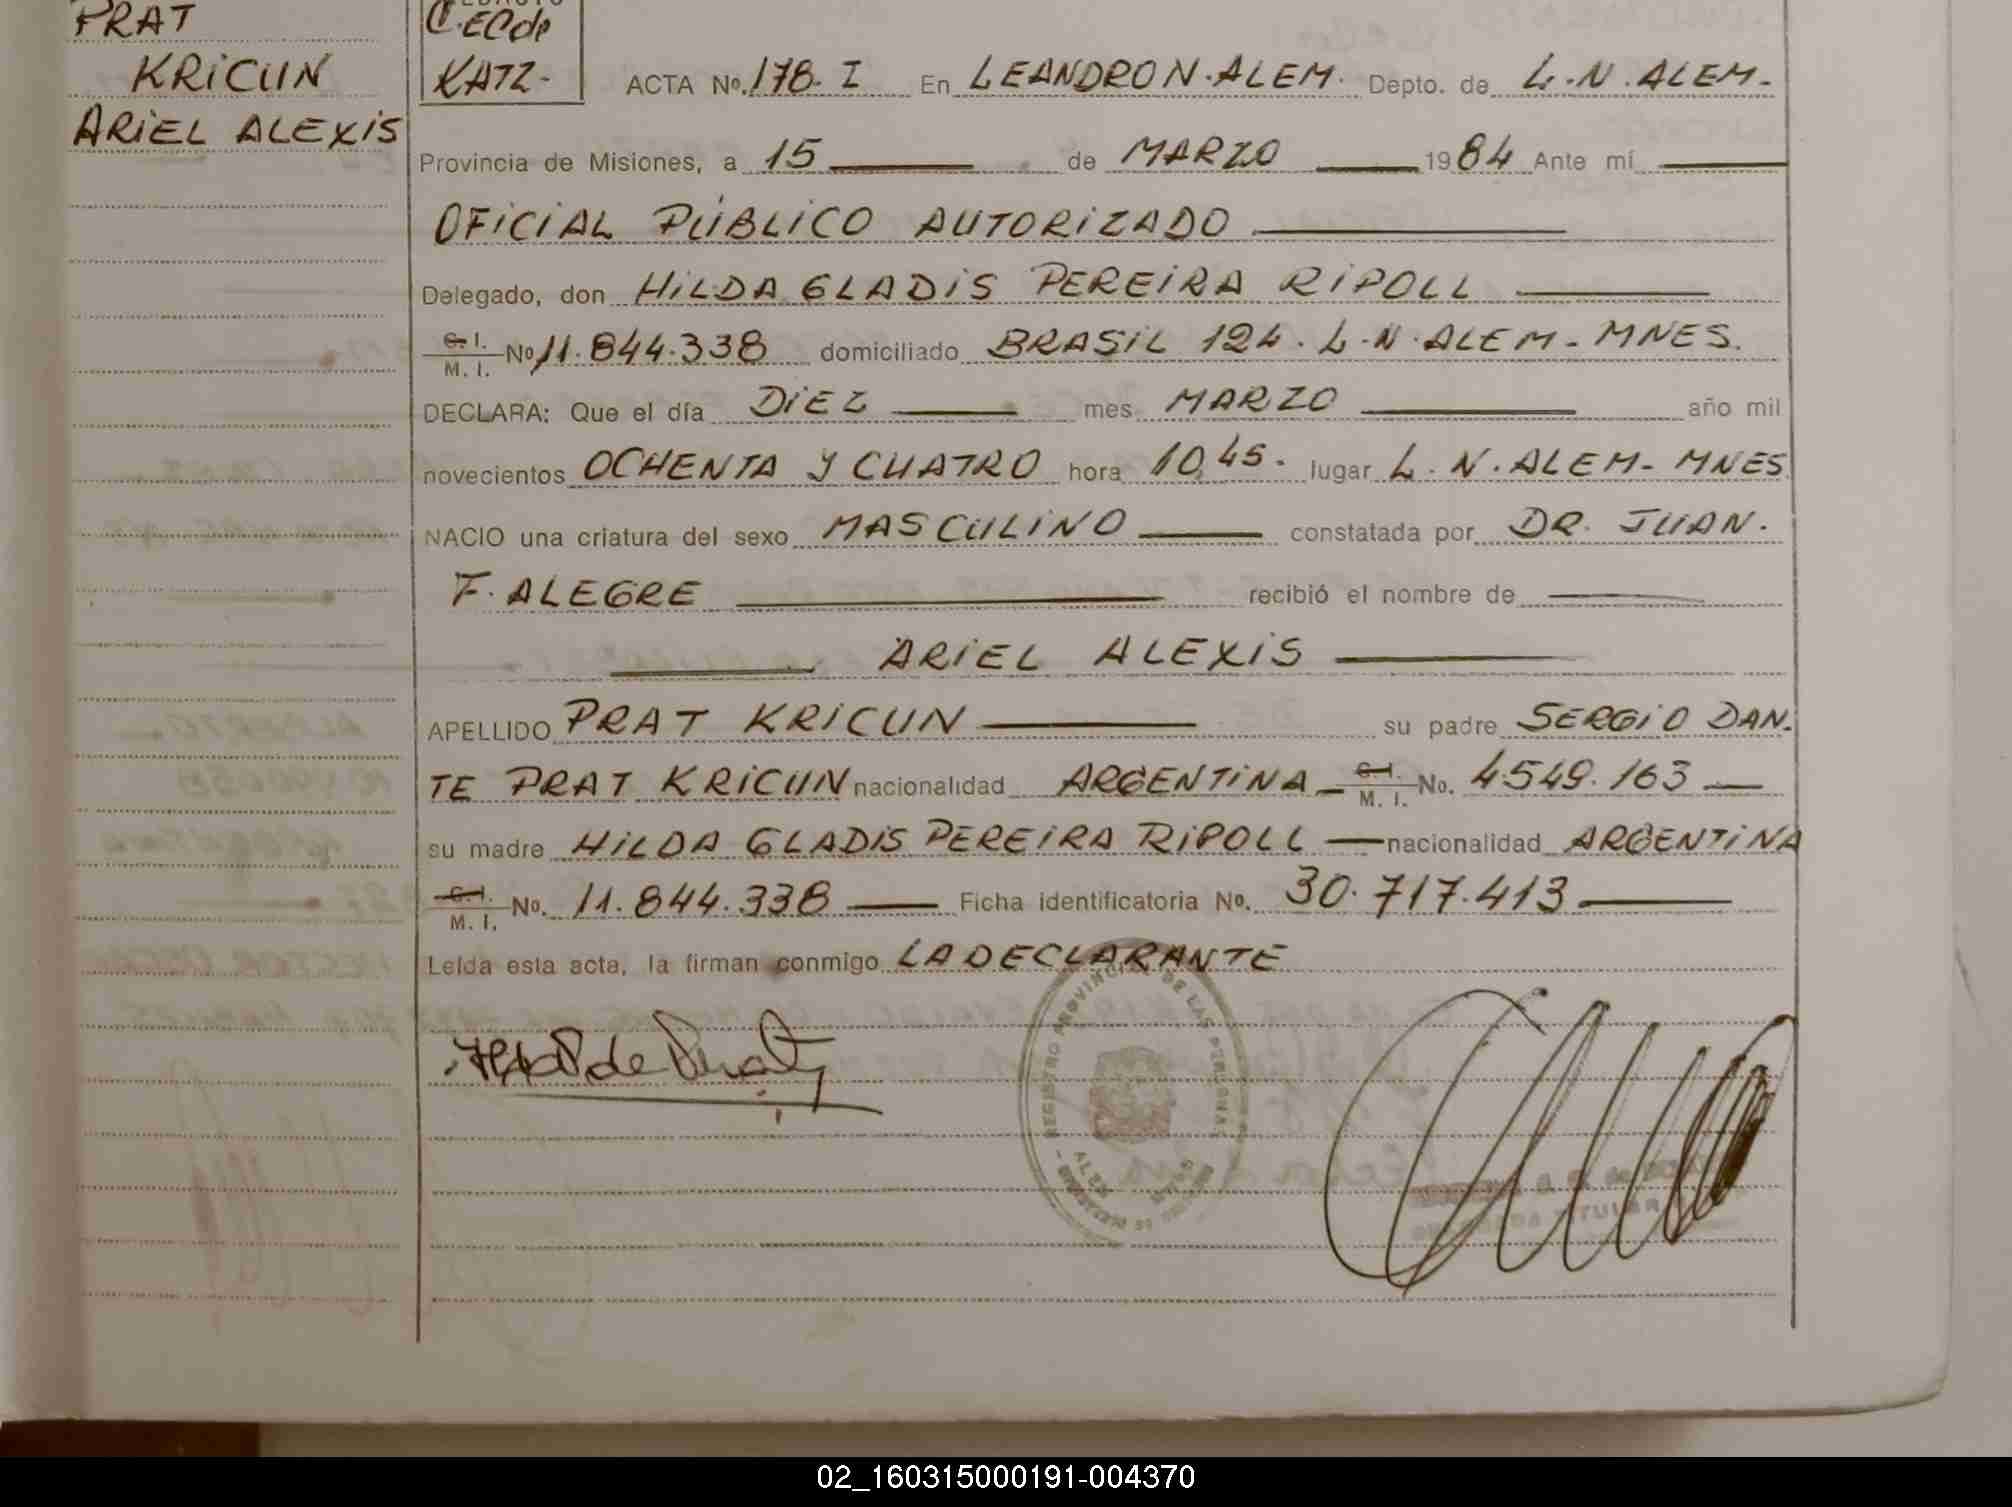 PRAT
KRICUN
ARIEL ALEXIS
C. EC de
KATZ-
ACTA No. 178. I En LEANDRO N. ALEM. Depto. de L. N. ALEM-
Provincia de Misiones, a 15 de MARZO 1984 Ante mí
OFICIAL PÚBLICO AUTORIZADO
Delegado, don HILDA GLADIS PEREIRA RIPOLL
C. I. M. I. No 11.844.338 domiciliado BRASIL 124. L. N. ALEM - MNES.
DECLARA: Que el día DIEZ mes MARZO año mil
novecientos OCHENTA Y CUATRO hora 10,45. lugar L. N. ALEM - MNES
NACIO una criatura del sexo MASCULINO constatada por DR. JUAN.
F. ALEGRE recibió el nombre de
ARIEL ALEXIS
APELLIDO PRAT KRICUN su padre SERGIO DAN.
TE PRAT KRICUN nacionalidad ARGENTINA - C. I. M. I. No. 4.549.163
su madre HILDA GLADIS PEREIRA RIPOLL nacionalidad ARGENTINA
C. I. M. I. No. 11.844.338 Ficha identificatoria No. 30.717.413
Leída esta acta, la firman conmigo LA DECLARANTE
REGISTRO PROVINCIAL DE LAS PERSONAS
ALEM
TITULAR
02_160315000191-004370